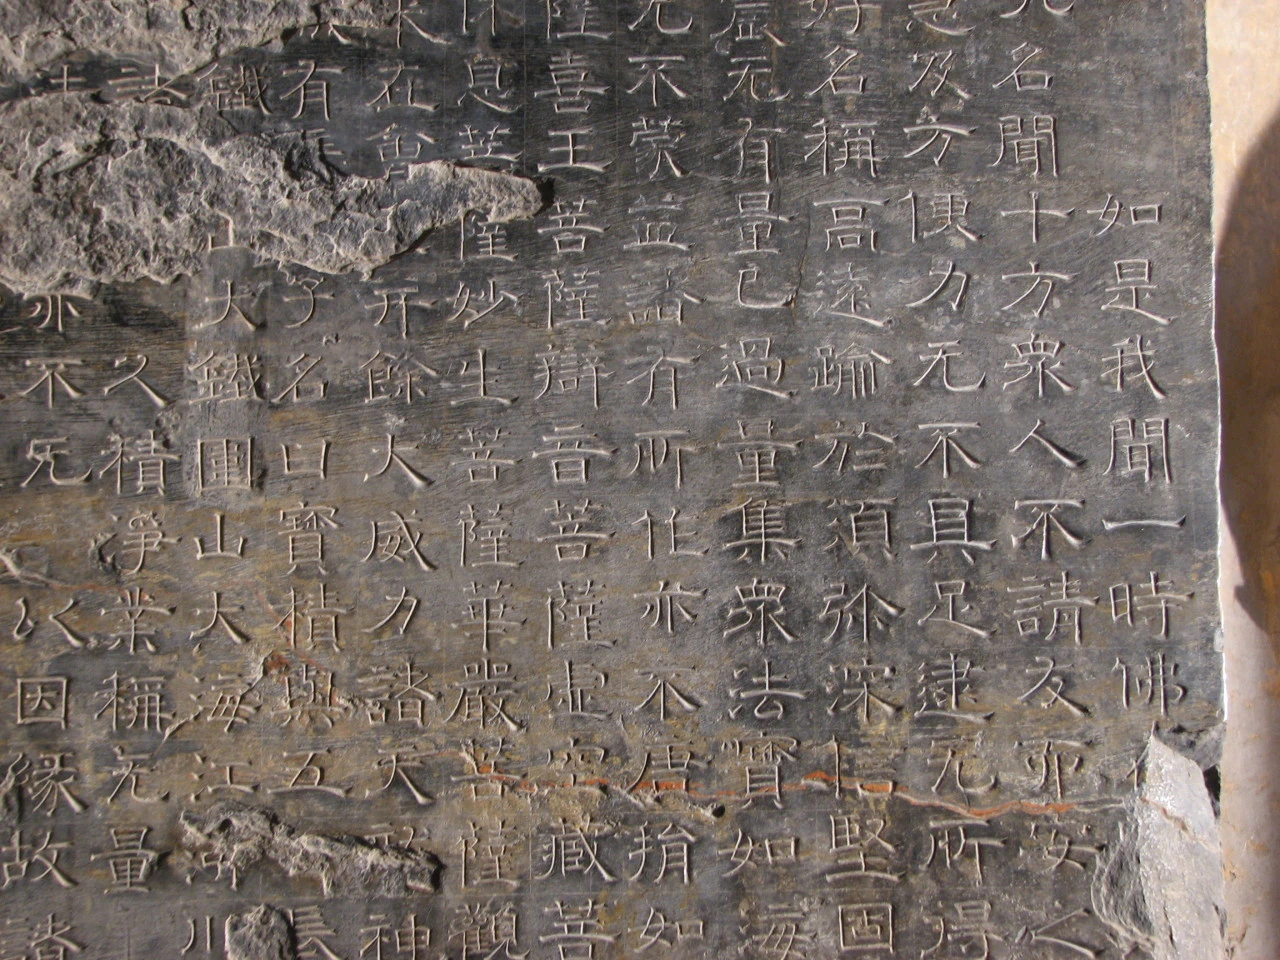 如是我聞一時佛
名聞十方衆人不請友而安之
念及方便力无不具足逮无所得
好名稱高遠踰於須弥深信堅固
无有量已過量集衆法寶如海
无不蒙益諸有所作亦不唐捐如
薩喜王菩薩辯音菩薩虛空藏菩
息菩薩妙生菩薩華嚴菩薩觀
在會并餘大威力諸天神
有子名曰寶積與五長
鐵山大鐵圍山大海江川
諸久積淨業稱无量
亦不无以因緣故諸